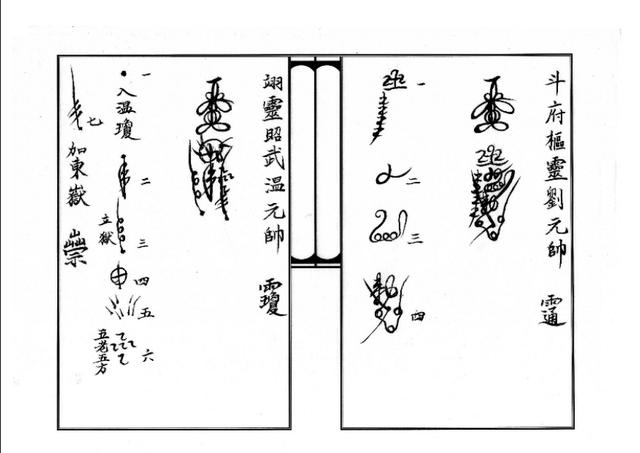 斗府樞靈劉元帥
一
二
三
四
翊靈昭武溫元帥
一
入溫瓊
二
三
立獄
四
五
六
五老五方
七
加東嶽